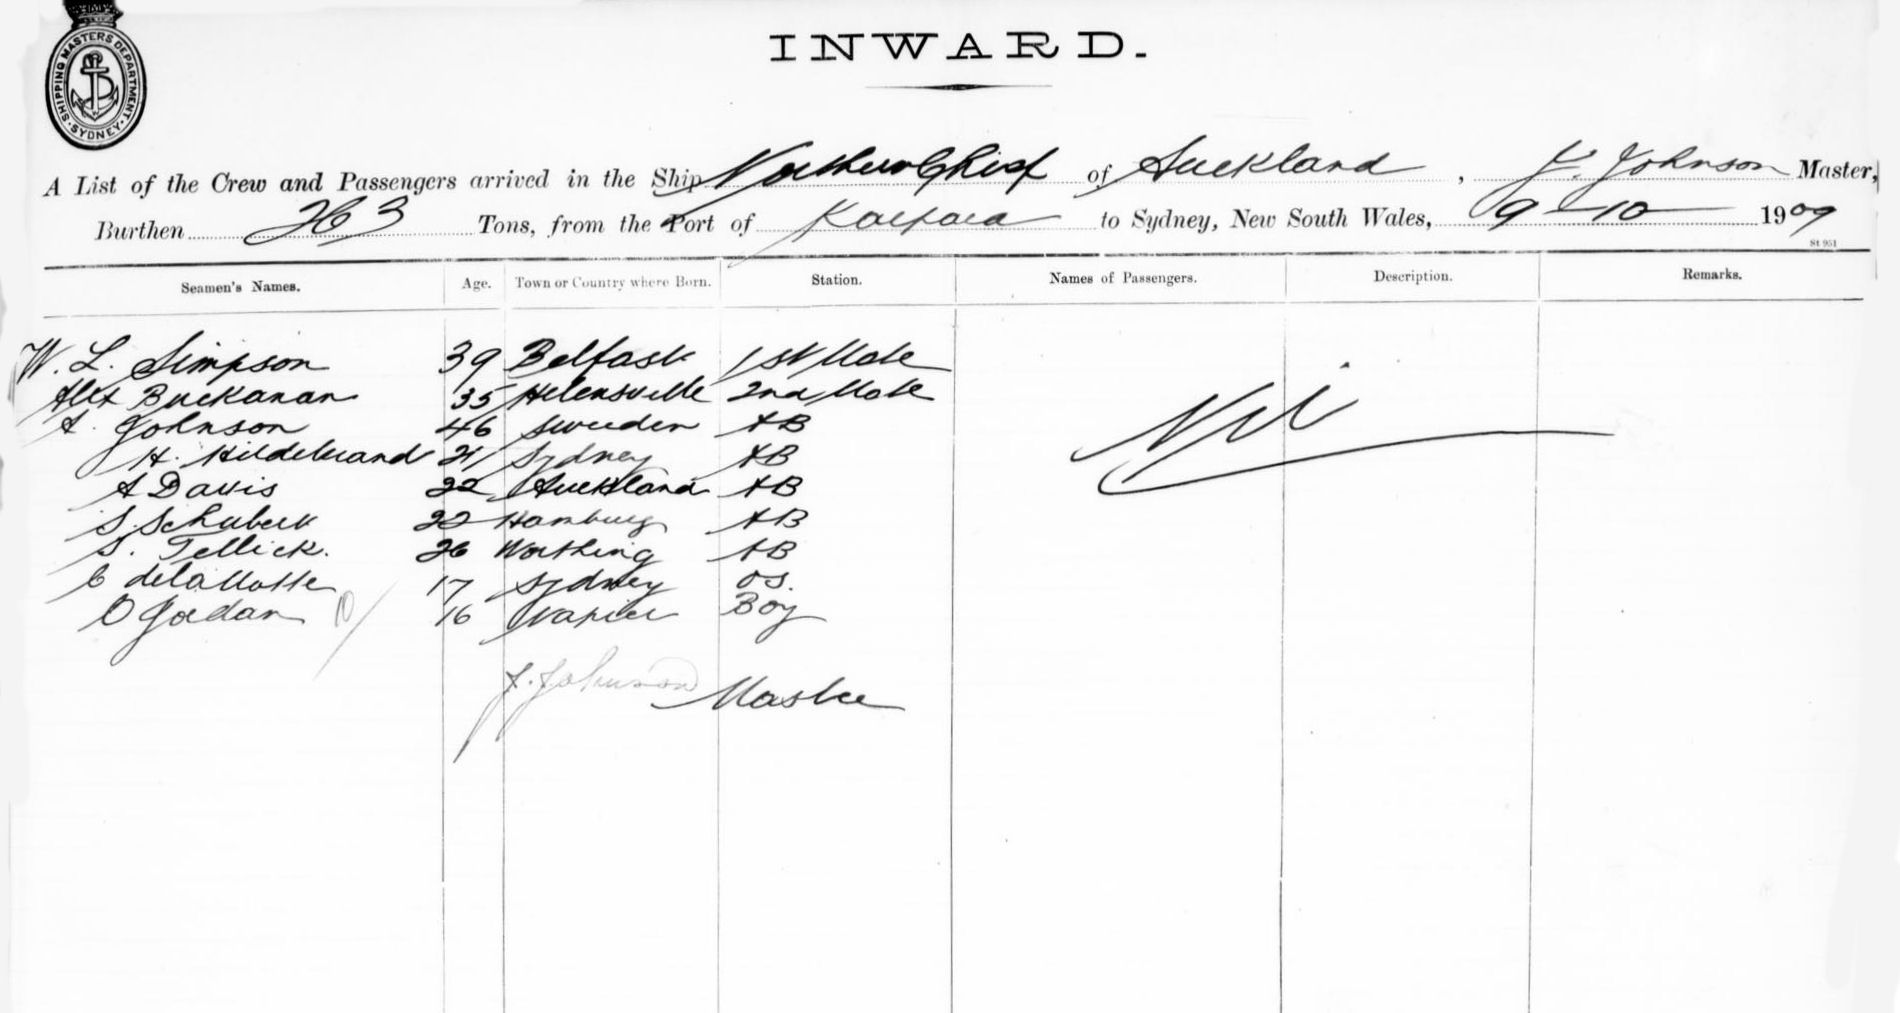 SHIPPING MASTERS DEPARTMENT. SYDNEY.
INWARD.
A List of the Crew and Passengers arrived in the Ship Northern Chief of Auckland, J. Johnson Master,
Burthen 263 Tons, from the Port of Kaipara to Sydney, New South Wales, 9-10 1909
St 951
Seamen's Names. Age. Town or Country where Born. Station. Names of Passengers. Description. Remarks.
W. L. Simpson 39 Belfast 1st Mate
Alex Buckanan 35 Helensville 2nd Mate
Nil
A. Johnson 46 Sweden AB
H. Hildebrand 21 Sydney AB
A Davis 22 Auckland AB
S. Schubert 22 Hamburg AB
S. Tellick. 26 Worthing AB
C delaMotte 17 Sydney OS.
O Jordan 16 Napier Boy
J. Johnson Master